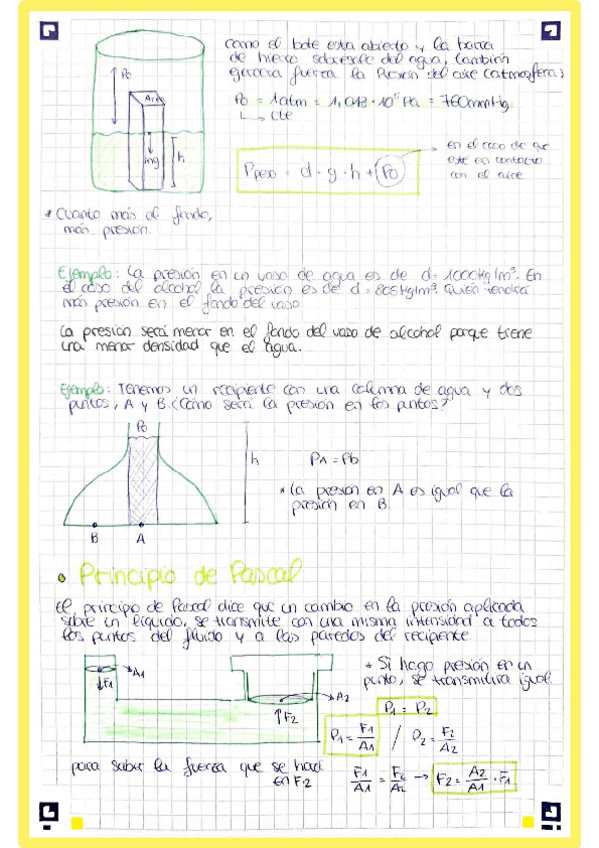 como el bote esta abierto y la barra
de hierro sobresale del agua, también
ejercera fuerza la Presión del aire (atmosfera)
P0 = 1atm = 1,013·10⁵ Pa = 760mmHg
↳ cte
P0
Area
mg
h
Ppeso = d·g·h + P0
en el caso de que
este en contacto
con el aire
* Cuanto más al fondo,
más presión.
Ejemplo: La presión en un vaso de agua es de d=1000kg/m³. En
el caso del alcohol la presión es de d=806kg/m³. Quién tendrá
más presión en el fondo del vaso
La presión será menor en el fondo del vaso de alcohol porque tiene
una menor densidad que el agua.
Ejemplo: Tenemos un recipiente con una columna de agua y dos
puntos, A y B. ¿Cómo será la presión en los puntos?
P0
h
PA = Pb
* La presión en A es igual que la
presión en B.
B A
• Principio de Pascal
El principo de Pascal dice que un cambio en la presión aplicada
sobre un líquido, se transmite con una misma intensidad a todos
los puntos del fluido y a las paredes del recipiente
A1
↓F1
A2
↑F2
* Si hago presión en un
punto, se transmitira igual.
P1 = P2
P1 = F1/A1 / P2 = F2/A2
para saber la fuerza que se hará
en F2
F1/A1 = F2/A2 → F2 = A2/A1 · F1